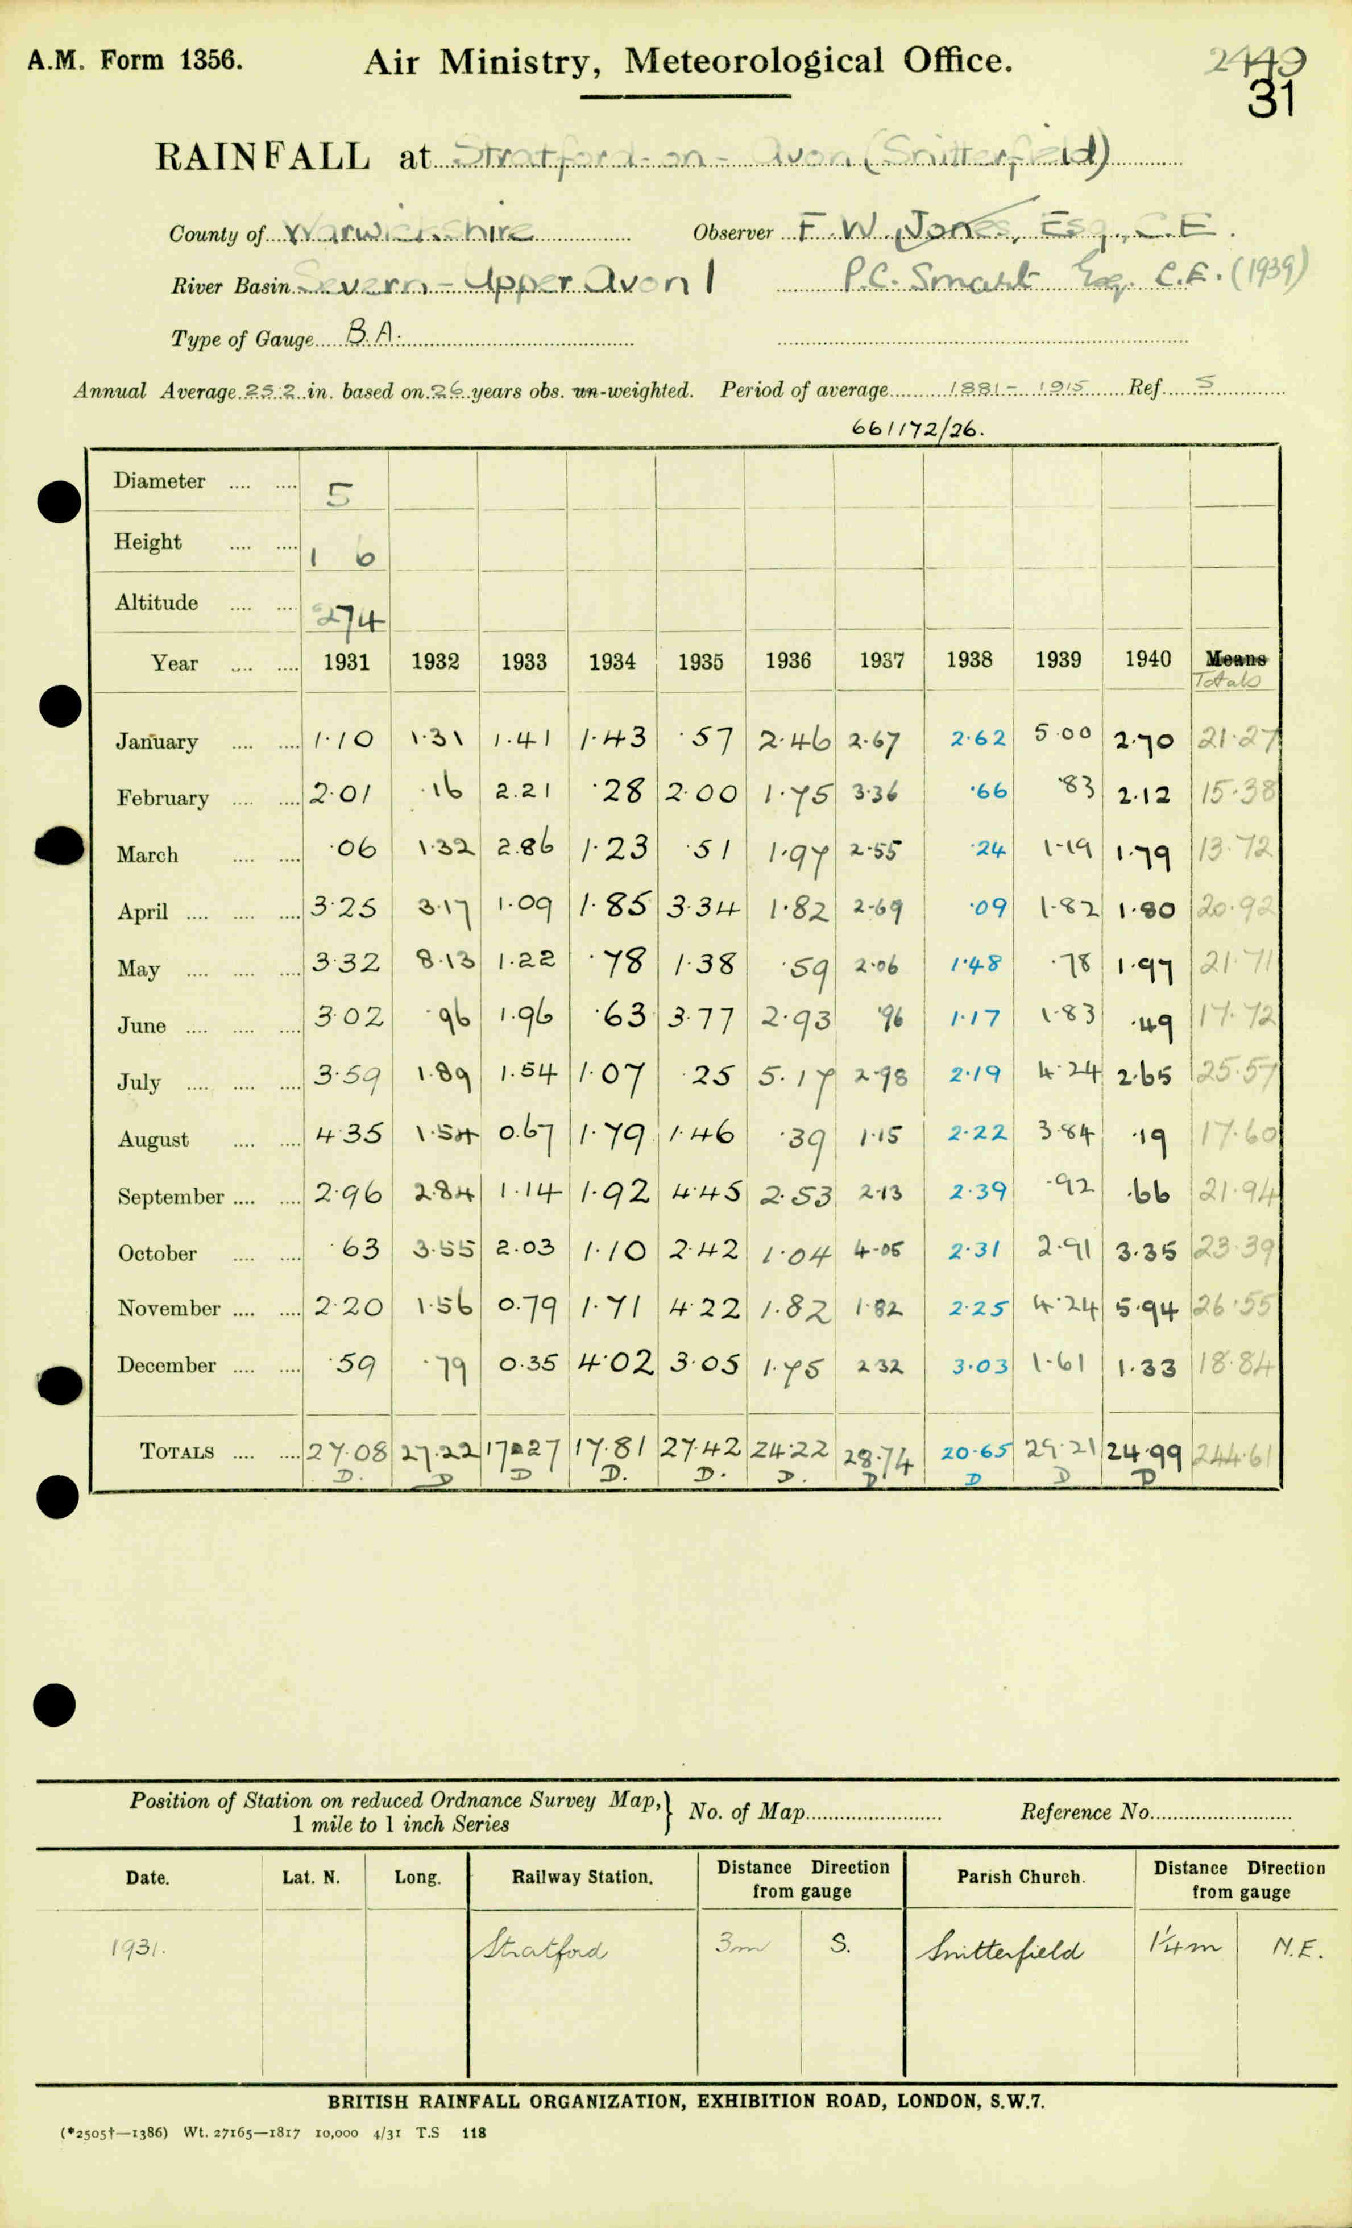 A.M. Form 1356. Air Ministry, Meteorological Office. 2449
31
RAINFALL at Stratford-on-Avon (Snitterfield)
County of Warwickshire Observer F. W. Jones, Esq., C.E.
River Basin Severn - Upper Avon 1 P.C. Smart Esq. C.E. (1939)
Type of Gauge B.A.
Annual Average 25.2 in. based on 26 years obs. un-weighted. Period of average 1881 - 1915 Ref. 5
661172/26.
Diameter 5
Height 1 6
Altitude 274
Year 1931 1932 1933 1934 1935 1936 1937 1938 1939 1940 Means
Totals
January 1.10 1.31 1.41 1.43 .57 2.46 2.67 2.62 5.00 2.70 21.27
February 2.01 .16 2.21 .28 2.00 1.75 3.36 .66 .83 2.12 15.38
March .06 1.32 2.86 1.23 .51 1.97 2.55 .24 1.19 1.79 13.72
April 3.25 3.17 1.09 1.85 3.34 1.82 2.69 .09 1.82 1.80 20.92
May 3.32 8.13 1.22 .78 1.38 .59 2.06 1.48 .78 1.97 21.71
June 3.02 .96 1.96 .63 3.77 2.93 .96 1.17 1.83 .49 17.72
July 3.59 1.89 1.54 1.07 .25 5.17 2.98 2.19 4.24 2.65 25.57
August 4.35 1.54 0.67 1.79 1.46 .39 1.15 2.22 3.84 .19 17.60
September 2.96 2.84 1.14 1.92 4.45 2.53 2.13 2.39 .92 .66 21.94
October .63 3.55 2.03 1.10 2.42 1.04 4.05 2.31 2.91 3.35 23.39
November 2.20 1.56 0.79 1.71 4.22 1.82 1.82 2.25 4.24 5.94 26.55
December .59 .79 0.35 4.02 3.05 1.75 2.32 3.03 1.61 1.33 18.84
TOTALS 27.08 27.22 17.27 17.81 27.42 24.22 28.74 20.65 29.21 24.99 244.61
D. D D D. D. D. D D D D
Position of Station on reduced Ordnance Survey Map, } No. of Map Reference No.
1 mile to 1 inch Series
Date. Lat. N. Long. Railway Station. Distance Direction from gauge Parish Church. Distance Direction from gauge
1931. Stratford 3m S. Snitterfield 1¼m N.E.
BRITISH RAINFALL ORGANIZATION, EXHIBITION ROAD, LONDON, S.W.7.
(*2505†—1386) Wt. 27165—1817 10,000 4/31 T.S 118